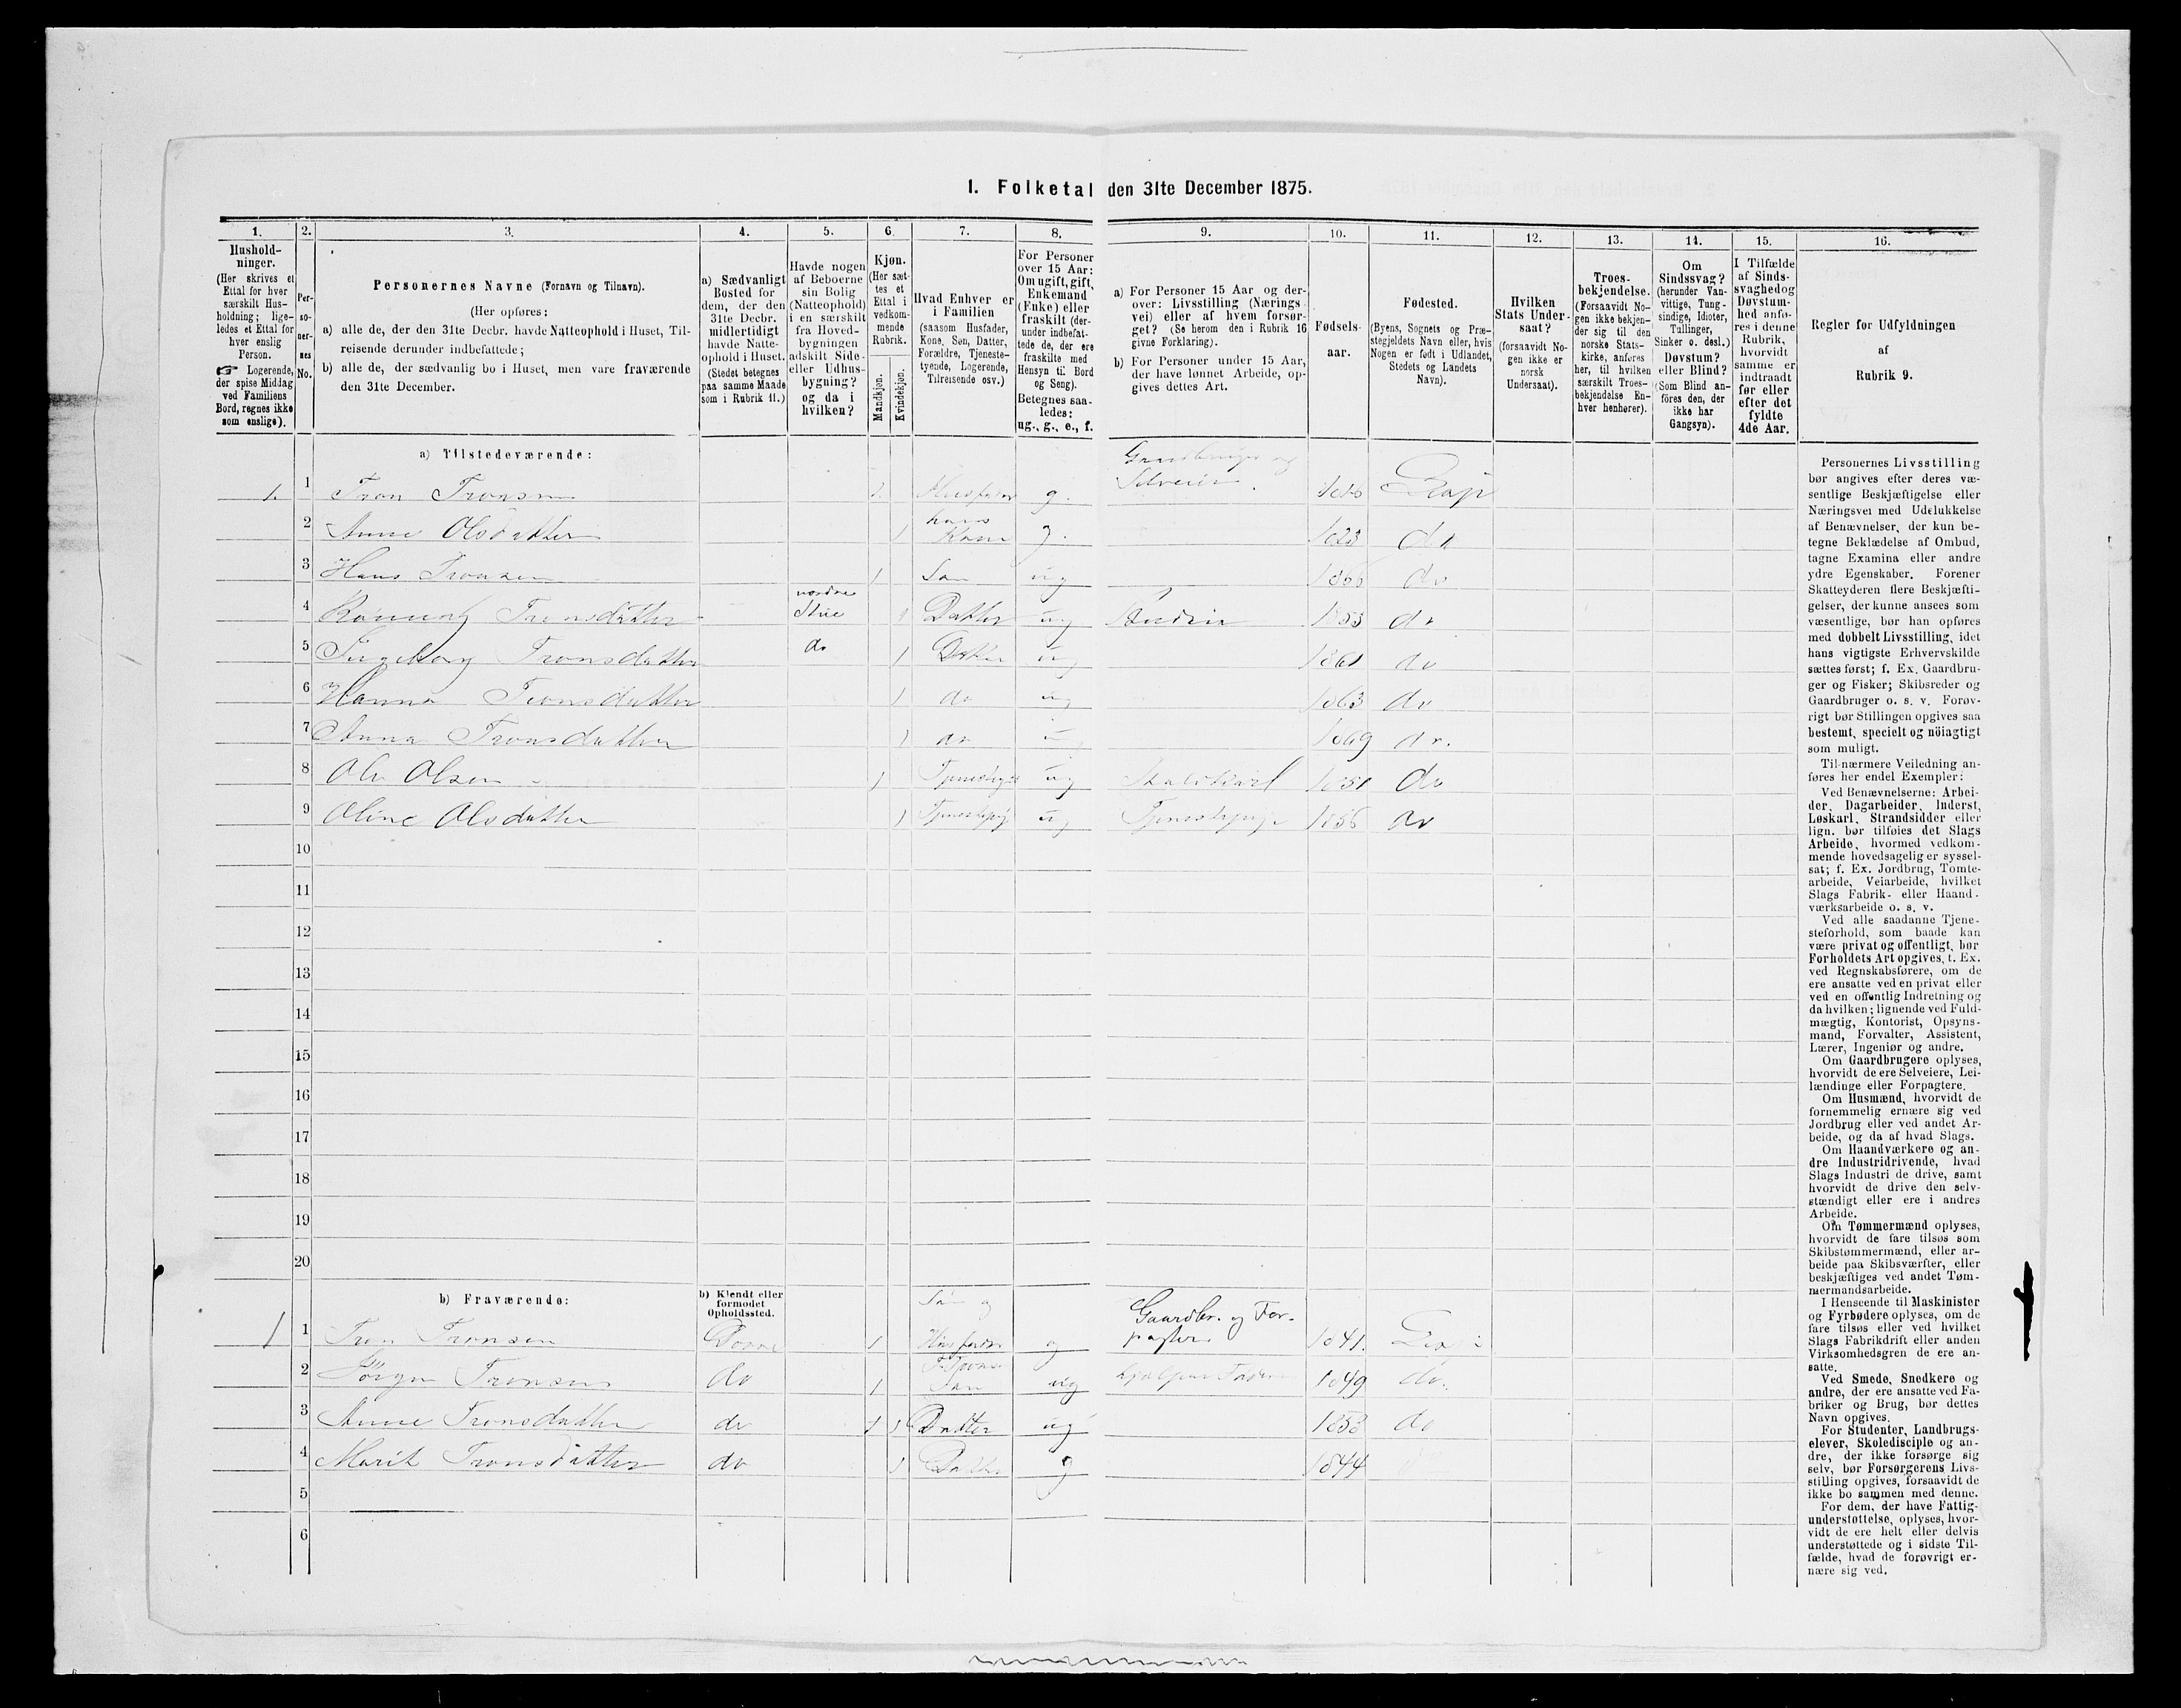 I. Folketal den 31te December 1875.
1. 2. 3. 4. 5. 6. 7. 8. 9. 10. 11. 12. 13. 14. 15. 16.
Hushold-
ninger.
(Her skrives et
Ettal for hver
særskilt Hus-
holdning; lige-
ledes et Ettal for
hver enslig
Person.
☞ Logerende,
der spise Middag
ved Familiens
Bord, regnes ikke
som enslige).
Per-
so-
ner-
nes
No.
Personernes Navne (Fornavn og Tilnavn).
(Her opføres:
a) alle de, der den 31te Decbr. havde Natteophold i Huset, Til-
reisende derunder indbefattede;
b) alle de, der sædvanlig bo i Huset, men vare fraværende
den 31te December.
a) Sædvanligt
Bosted for
dem, der den
31te Decbr.
midlertidigt
havde Natte-
ophold i Huset.
(Stedet betegnes
paa samme Maade
som i Rubrik 11.)
Havde nogen
af Beboerne
sin Bolig
(Natteophold)
i en særskilt
fra Hoved-
bygningen
adskilt Side-
eller Udhus-
bygning?
og da i
hvilken?
Kjøn.
(Her sæt-
tes et
Ettal i
vedkom-
mende
Rubrik.
Mandkjøn.
Kvindekjøn.
Hvad Enhver er
i Familien
(saasom Husfader,
Kone, Søn, Datter,
Forældre, Tjeneste-
tyende, Logerende,
Tilreisende osv.)
For Personer
over 15 Aar:
Om ugift, gift,
Enkemand
(Enke) eller
fraskilt (der-
under indbefat-
tede de, der ere
fraskilte med
Hensyn til Bord
og Seng).
Betegnes saa-
ledes:
ug., g., e., f.
a) For Personer 15 Aar og der-
over: Livsstilling (Nærings-
vei) eller af hvem forsør-
get? (Se herom den i Rubrik 16
givne Forklaring).
b) For Personer under 15 Aar,
der have lønnet Arbeide, op-
gives dettes Art.
Fødsels-
aar.
Fødested.
(Byens, Sognets og Præ-
stegjeldets Navn eller, hvis
Nogen er født i Udlandet,
Stedets og Landets
Navn).
Hvilken
Stats Under-
saat?
(forsaavidt No-
gen ikke er
norsk
Undersaat).
Troes-
bekjendelse.
(Forsaavidt No-
gen ikke bekjen-
der sig til den
norske Stats-
kirke, anføres
her, til hvilken
særskilt Troes-
bekjendelse En-
hver henhører).
Om
Sindssvag?
(herunder Van-
vittige, Tung-
sindige, Idioter,
Tullinger,
Sinker o. desl.)
Døvstum?
eller Blind?
(Som Blind an-
føres den, der
ikke har
Gangsyn).
I Tilfælde
af Sinds-
svaghed og
Døvstum-
hed anfø-
res i denne
Rubrik,
hvorvidt
samme er
indtraadt
før eller
efter det
fyldte
4de Aar.
Regler for Udfyldningen
af
Rubrik 9.
a) Tilstedeværende:
1 1 Tron Tronsen 1 Husfader g. Gaardbruger og
Selveier
2 Anne Olsdatter 1 hans
Kone g. 1823 do
3 Hans Tronsen 1 Søn ug 1866 do
4 Tronsdatter nordre
Stue 1 Datter ug Budeie 1853 do
5 Ingeborg Tronsdatter do 1 Datter ug 1861 do
6 Hanna Tronsdatter 1 do ug 1863 do
7 Anna Tronsdatter 1 do 1869 do.
8 Ole Olsen 1 ug Staldkarl 1851 do
9 Oline Olsdatter 1 Tjenestepig ug Tjenestepige do
10
11
12
13
14
15
16
17
18
19
20
b) Fraværende:
b) Kjendt eller
formodet
Opholdssted.
1 1 Tron Tronsen Dovre 1 Søn og
Husfader g Gaardbr. og For-
pagter 1841.
2 Tronsen do 1 Søn ug hjælper Faderen 1849 do.
3 Anne Tronsdatter do 1 Datter ug 1853 do
4 Marit Tronsdatter do 1 Datter g 1844
5
6
Personernes Livsstilling
bør angives efter deres væ-
sentlige Beskjæftigelse eller
Næringsvei med Udelukkelse
af Benævnelser, der kun be-
tegne Beklædelse af Ombud,
tagne Examina eller andre
ydre Egenskaber. Forener
Skatteyderen flere Beskjæfti-
gelser, der kunne ansees som
væsentlige, bør han opføres
med dobbelt Livsstilling, idet
hans vigtigste Erhvervskilde
sættes først; f. Ex. Gaardbru-
ger og Fisker; Skibsreder og
Gaardbruger o. s. v. Forøv-
rigt bør Stillingen opgives saa
bestemt, specielt og nöiagtigt
som muligt.
Til nærmere Veiledning an-
føres her endel Exempler:
Ved Benævnelserne: Arbei-
der, Dagarbeider, Inderst,
Løskarl, Strandsidder eller
lign. bør tilføies det Slags
Arbeide, hvormed vedkom-
mende hovedsagelig er syssel-
sat; f. Ex. Jordbrug, Tomte-
arbeide, Veiarbeide, hvilket
Slags Fabrik- eller Haand-
værksarbeide o. s. v.
Ved alle saadanne Tjene-
steforhold, som baade kan
være privat og offentligt, bør
Forholdets Art opgives, t. Ex.
ved Regnskabsførere, om de
ere ansatte ved en privat eller
ved en offentlig Indretning og
da hvilken; lignende ved Fuld-
mægtig, Kontorist, Opsyns-
mand, Forvalter, Assistent,
Lærer, Ingeniør og andre.
Om Gaardbrugere oplyses,
hvorvidt de ere Selveiere, Lei-
lændinge eller Forpagtere.
Om Husmænd, hvorvidt de
fornemmelig ernære sig ved
Jordbrug eller ved andet Ar-
beide, og da af hvad Slags.
Om Haandværkere og an-
dre Industridrivende, hvad
Slags Industri de drive, samt
hvorvidt de drive den selv-
stændigt eller ere i andres
Arbeide.
Om Tømmermænd oplyses,
hvorvidt de fare tilsøs som
Skibstømmermænd, eller ar-
beide paa Skibsværfter, eller
beskjæftiges ved andet Tøm-
mermandsarbeide.
I Henseende til Maskinister
og Fyrbødere oplyses, om de
fare tilsøs eller ved hvilket
Slags Fabrikdrift eller anden
Virksomhedsgren de ere an-
satte.
Ved Smede, Snedkere og
andre, der ere ansatte ved Fa-
briker og Brug, bør dettes
Navn opgives.
For Studenter, Landbrugs-
elever, Skoledisciple og an-
dre, der ikke forsørge sig
selv, bør Forsørgerens Livs-
stilling opgives, forsaavidt de
ikke bo sammen med denne.
For dem, der have Fattig-
understøttelse, oplyses, hvor-
vidt de ere helt eller delvis
understøttede og i sidste Til-
fælde, hvad de forøvrigt er-
nære sig ved.